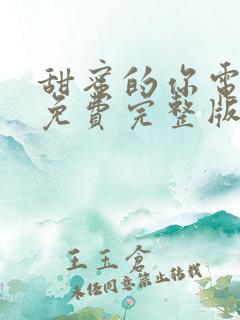 甜蜜的你電
免費完整版
王玉倉
未经同意禁止转载